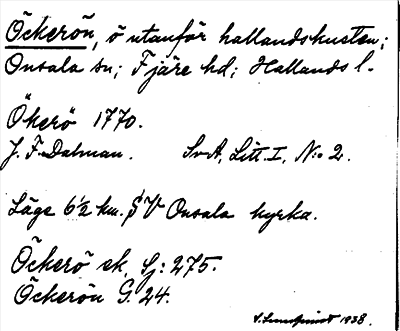 Öckerön, ö utanför hallandskusten;
Onsala sn; Fjäre hd; Hallands l.
Ökerö 1770.
J. F. Dalman. SvA, Litt. I, N:o 2.
Läge 6½ km. SV Onsala kyrka.
Öckerö ek. Sj: 275.
Öckerön G. 24.
S. Lundquist 1938.